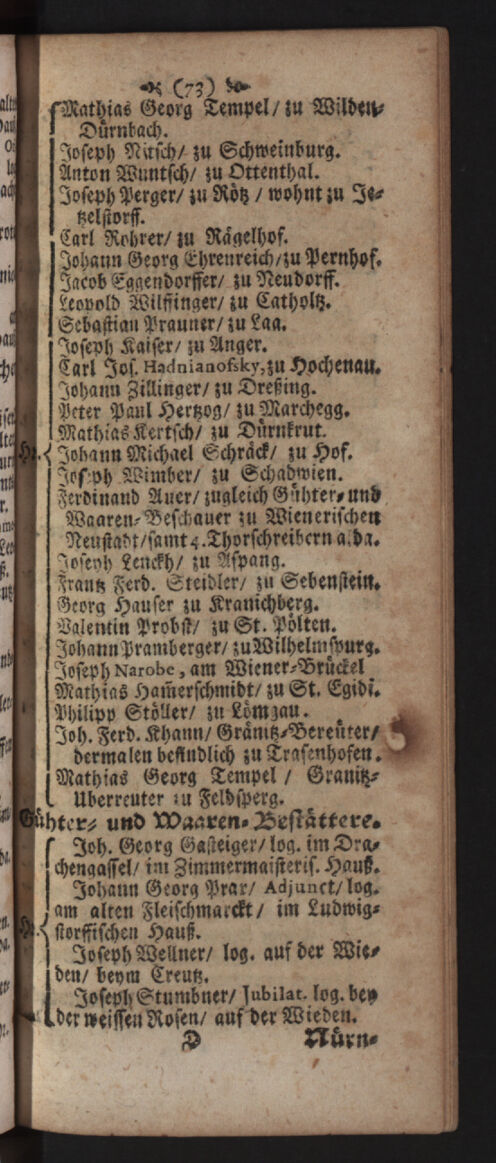 (73)
Mathias Georg Tempel/ zu Wilden-
Dürnbach.
Joseph Nitsch/ zu Schweinburg.
Anton Wuntsch/ zu Ottenthal.
Joseph Perger/ zu Rötz / wohnt zu Je-
tzelstorff.
Carl Rohrer/ zu Rägelhof.
Johann Georg Ehrenreich/zu Pernhof.
Jacob Eggendorffer/ zu Neudorff.
Leopold Wilffinger/ zu Catholtz.
Sebastian Prauner/ zu Laa.
Joseph Kaiser/ zu Anger.
Carl Jos. Hadnianofsky, zu Hochenau.
Johann Zillinger/ zu Dreßing.
Peter Paul Hertzog/ zu Marchegg.
Mathias Kertsch/ zu Dürnkrut.
Hr. Johann Michael Schräck/ zu Hof.
Joseph Wimber/ zu Schadwien.
Ferdinand Auer/ zugleich Gühter- und
Waaren-Beschauer zu Wienerischen
Neustadt/ samt 4. Thorschreibern alda.
Joseph Lenckh/ zu Aspang.
Frantz Ferd. Steidler/ zu Sebenstein.
Georg Hauser zu Kranichberg.
Valentin Probst/ zu St. Pölten.
Johann Pramberger/ zu Wilhelmspurg.
Joseph Narobe, am Wiener-Brückel
Mathias Hamerschmidt/ zu St. Egidi.
Philipp Stöller/ zu Lömgau.
Joh. Ferd. Khann/ Gränitz-Bereuter/
dermalen befindlich zu Trasenhofen.
Mathias Georg Tempel / Granitz-
Uberreuter zu Feldsperg.
Gühter- und Waaren-Bestättere.
Joh. Georg Gasteiger/ log. im Dra-
chengassel/ im Zimmermaisteris. Hauß.
Johann Georg Prax/ Adjunct/ log.
am alten Fleischmarckt/ im Ludwig-
Hr. storffischen Hauß.
Joseph Wellner/ log. auf der Wie-
den/ beym Creutz.
Joseph Stumbner/ Jubilat. log. bey
der weissen Rosen/ auf der Wieden.
D Nürn-